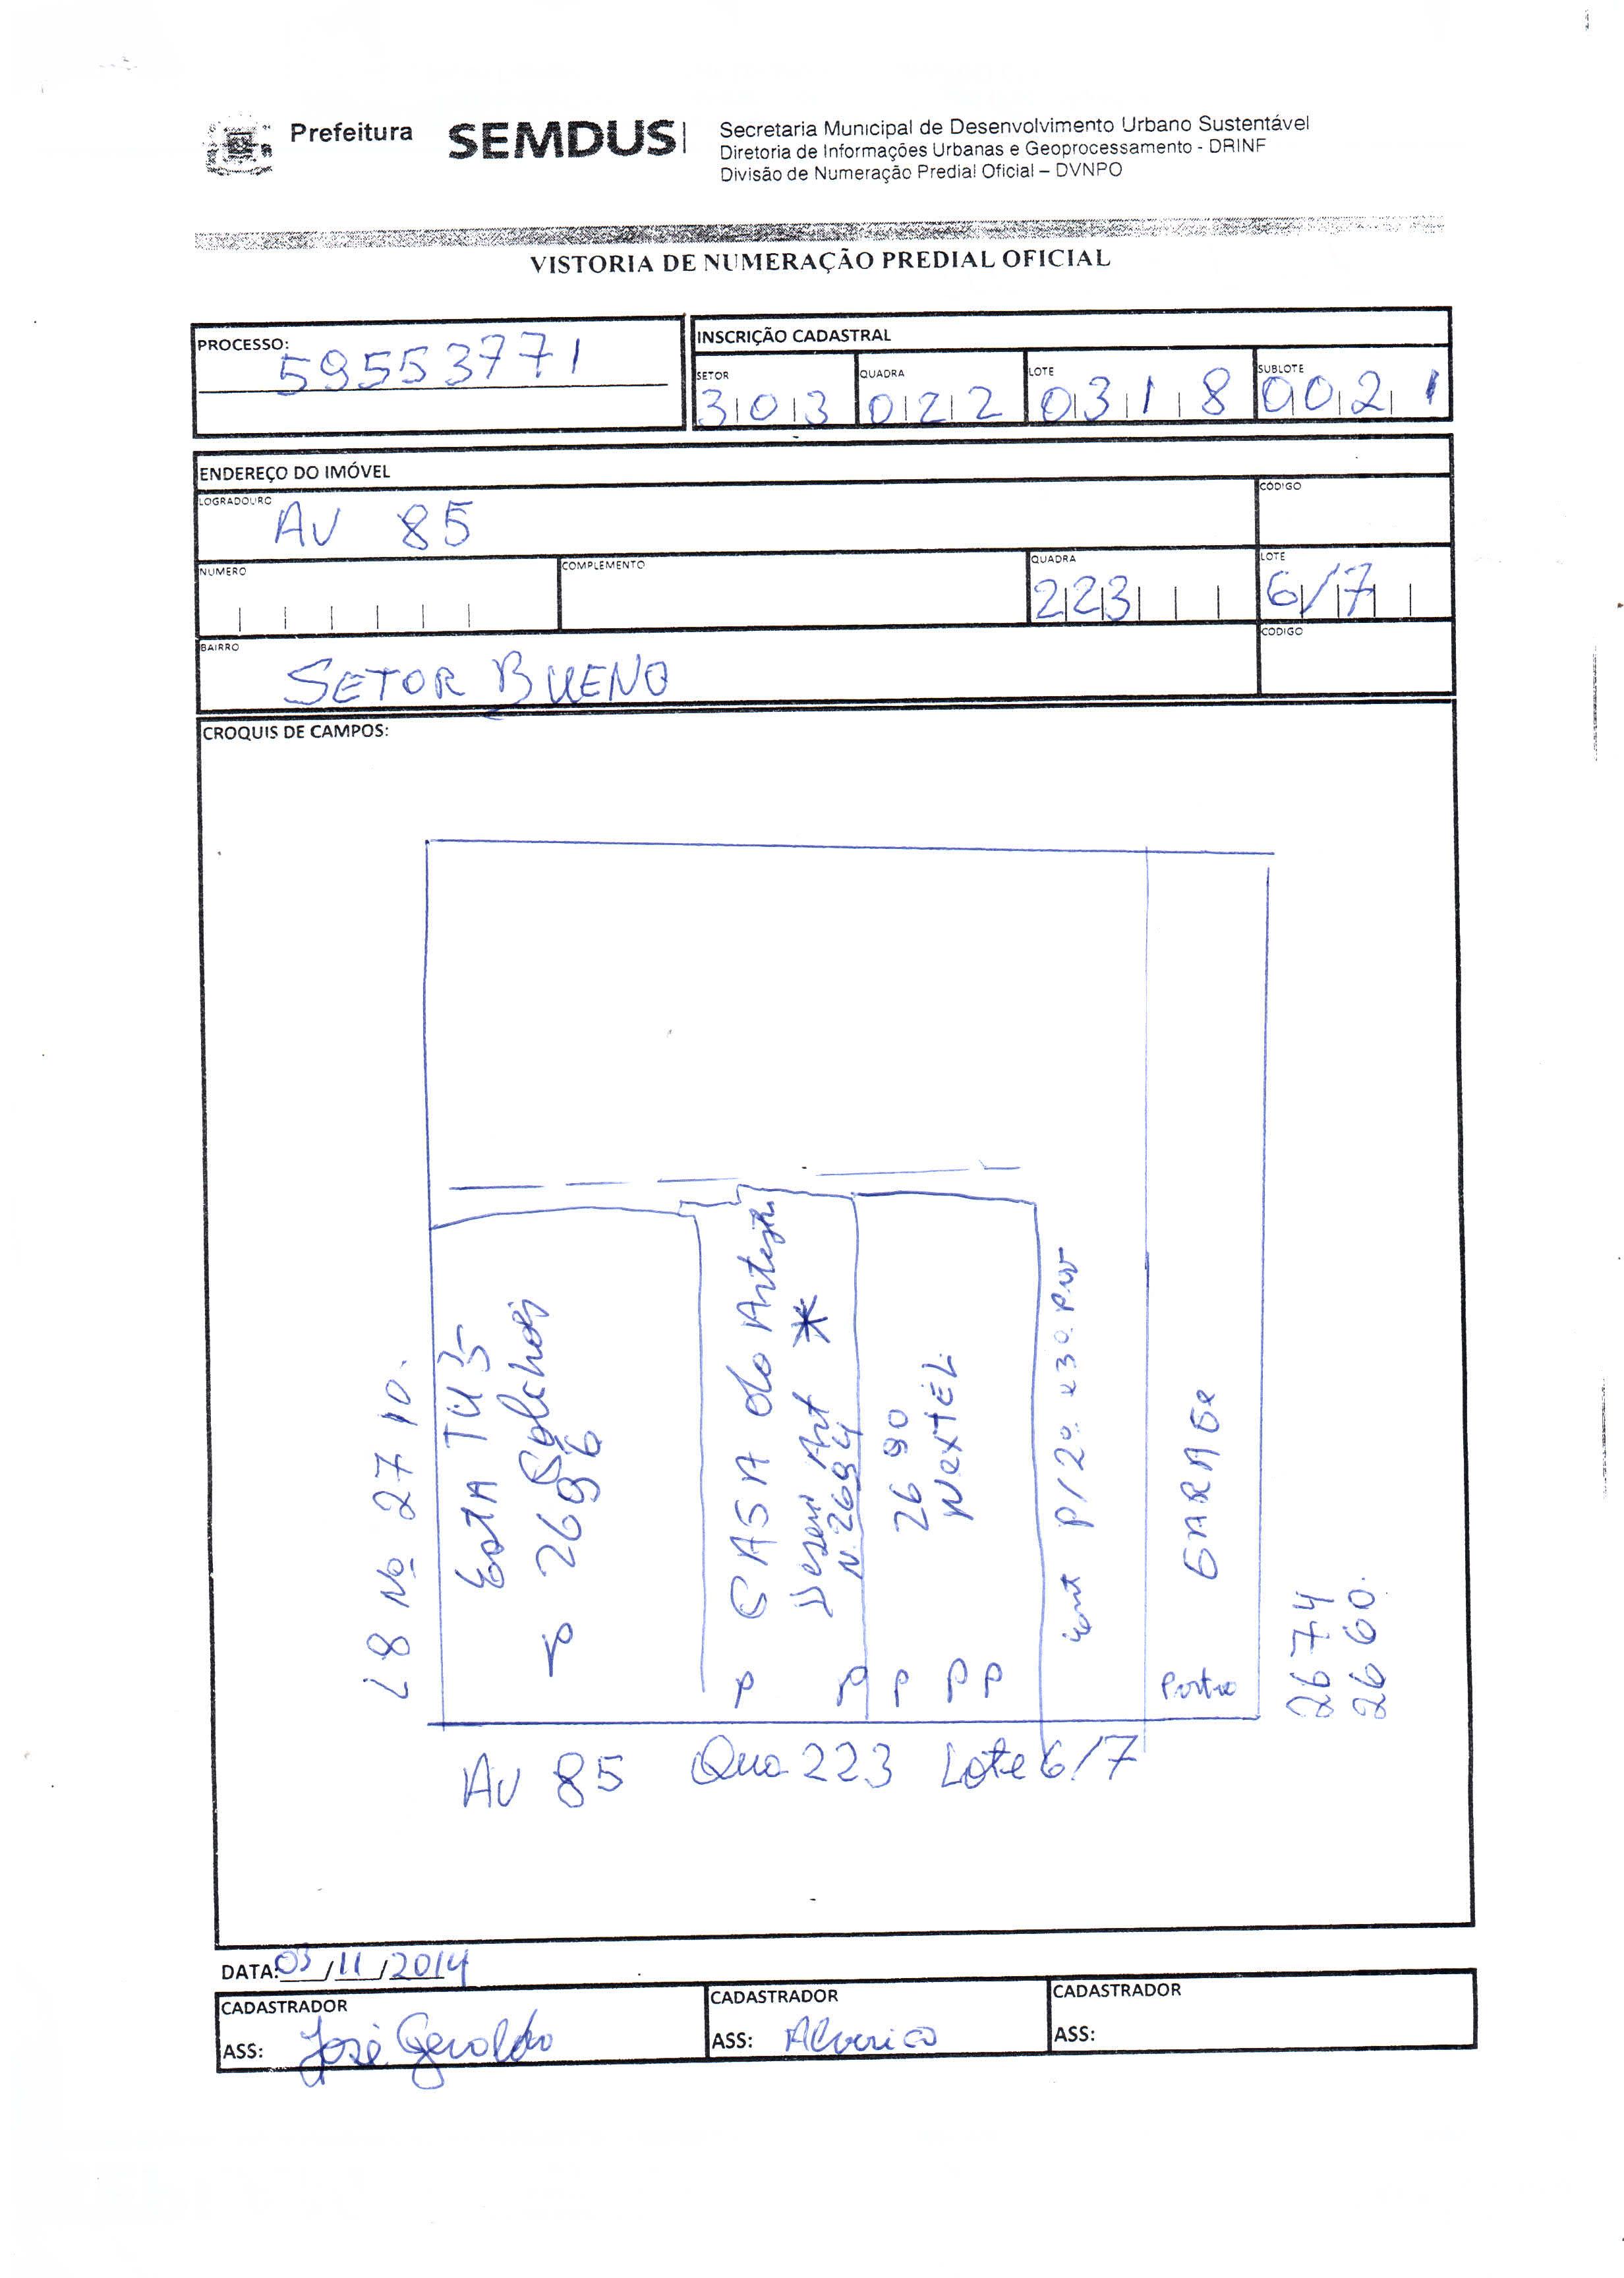 Prefeitura SEMDUS
Secretaria Municipal de Desenvolvimento Urbano Sustentável
Diretoria de Informações Urbanas e Geoprocessamento - DRINF
Divisão de Numeração Predial Oficial – DVNPO
VISTORIA DE NUMERAÇÃO PREDIAL OFICIAL
PROCESSO: 59553771
INSCRIÇÃO CADASTRAL
SETOR 303 QUADRA 022 LOTE 0318 SUBLOTE 0021
ENDEREÇO DO IMÓVEL
LOGRADOURO AV 85 CÓDIGO
NUMERO COMPLEMENTO QUADRA 223 LOTE 6/7
BAIRRO SETOR BUENO CÓDIGO
CROQUIS DE CAMPOS:
L8 Nº 2710.
P 2696
P CASA do
Art
N. 2694
P
P 2690
P NEXTEL
P
P/2º e 3º
GARAGE
2674
2660.
AV 85 Qua 223 Lote 6/7
DATA: 03/11/2014
CADASTRADOR
ASS: José Geraldo
CADASTRADOR
ASS:
CADASTRADOR
ASS: